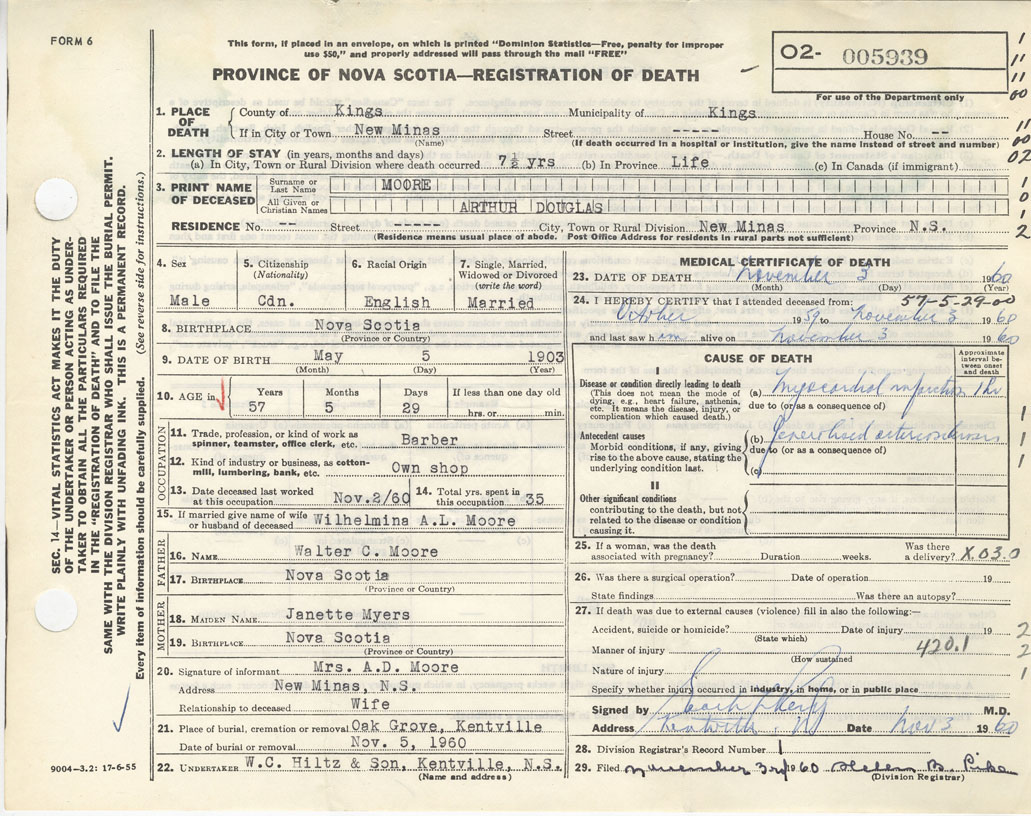 FORM 6
This form, if placed in an envelope, on which is printed "Dominion Statistics—Free, penalty for improper
use $50," and properly addressed will pass through the mail "FREE"
PROVINCE OF NOVA SCOTIA—REGISTRATION OF DEATH
02- 005939
For use of the Department only
SEC. 14—VITAL STATISTICS ACT MAKES IT THE DUTY
OF THE UNDERTAKER OR PERSON ACTING AS UNDER-
TAKER TO OBTAIN ALL THE PARTICULARS REQUIRED
IN THE "REGISTRATION OF DEATH" AND TO FILE THE
SAME WITH THE DIVISION REGISTRAR WHO SHALL ISSUE THE BURIAL PERMIT.
WRITE PLAINLY WITH UNFADING INK. THIS IS A PERMANENT RECORD.
Every item of information should be carefully supplied. (See reverse side for instructions.)
1. PLACE OF DEATH County of Kings Municipality of Kings
If in City or Town New Minas Street ----- House No. --
(Name) (If death occurred in a hospital or institution, give the name instead of street and number)
2. LENGTH OF STAY (in years, months and days)
(a) In City, Town or Rural Division where death occurred 7½ yrs (b) In Province Life (c) In Canada (if immigrant)
3. PRINT NAME OF DECEASED Surname or Last Name MOORE
All Given or Christian Names ARTHUR DOUGLAS
RESIDENCE No. -- Street ----- City, Town or Rural Division New Minas Province N.S.
(Residence means usual place of abode. Post Office Address for residents in rural parts not sufficient)
4. Sex 5. Citizenship (Nationality) 6. Racial Origin 7. Single, Married, Widowed or Divorced (write the word)
Male Cdn. English Married
8. BIRTHPLACE Nova Scotia
(Province or Country)
9. DATE OF BIRTH May 5 1903
(Month) (Day) (Year)
10. AGE in Years Months Days If less than one day old
57 5 29 hrs. or min.
OCCUPATION
11. Trade, profession, or kind of work as spinner, teamster, office clerk, etc. Barber
12. Kind of industry or business, as cotton-mill, lumbering, bank, etc. Own shop
13. Date deceased last worked at this occupation Nov.2/60 14. Total yrs. spent in this occupation 35
15. If married give name of wife or husband of deceased Wilhelmina A.L. Moore
FATHER
16. NAME Walter C. Moore
17. BIRTHPLACE Nova Scotia
(Province or Country)
MOTHER
18. MAIDEN NAME Janette Myers
19. BIRTHPLACE Nova Scotia
(Province or Country)
20. Signature of informant Mrs. A.D. Moore
Address New Minas, N.S.
Relationship to deceased Wife
21. Place of burial, cremation or removal Oak Grove, Kentville
Date of burial or removal Nov. 5, 1960
22. UNDERTAKER W.C. Hiltz & Son, Kentville, N.S.
(Name and address)
9004-3.2: 17-6-55
MEDICAL CERTIFICATE OF DEATH
23. DATE OF DEATH November 3 1960
(Month) (Day) (Year)
24. I HEREBY CERTIFY that I attended deceased from: 57-5-29-00
October 1959 to November 3 1960
and last saw him alive on November 3 1960
CAUSE OF DEATH
Approximate interval between onset and death
I
Disease or condition directly leading to death (This does not mean the mode of dying, e.g., heart failure, asthenia, etc. It means the disease, injury, or complication which caused death.)
(a) Myocardial infarction 1 hr
due to (or as a consequence of)
Antecedent causes
Morbid conditions, if any, giving rise to the above cause, stating the underlying condition last.
(b) Generalised arteriosclerosis
due to (or as a consequence of)
(c)
II
Other significant conditions contributing to the death, but not related to the disease or condition causing it.
25. If a woman, was the death associated with pregnancy? Duration weeks. Was there a delivery? X.03.0
26. Was there a surgical operation? Date of operation 19
State findings Was there an autopsy?
27. If death was due to external causes (violence) fill in also the following:—
Accident, suicide or homicide? Date of injury 19
(State which)
Manner of injury 420.1
(How sustained)
Nature of injury
Specify whether injury occurred in industry, in home, or in public place
Signed by M.D.
Address Kentville NS Date Nov 3 1960
28. Division Registrar's Record Number 1
29. Filed November 3rd 1960 Helen B. Pike
(Division Registrar)